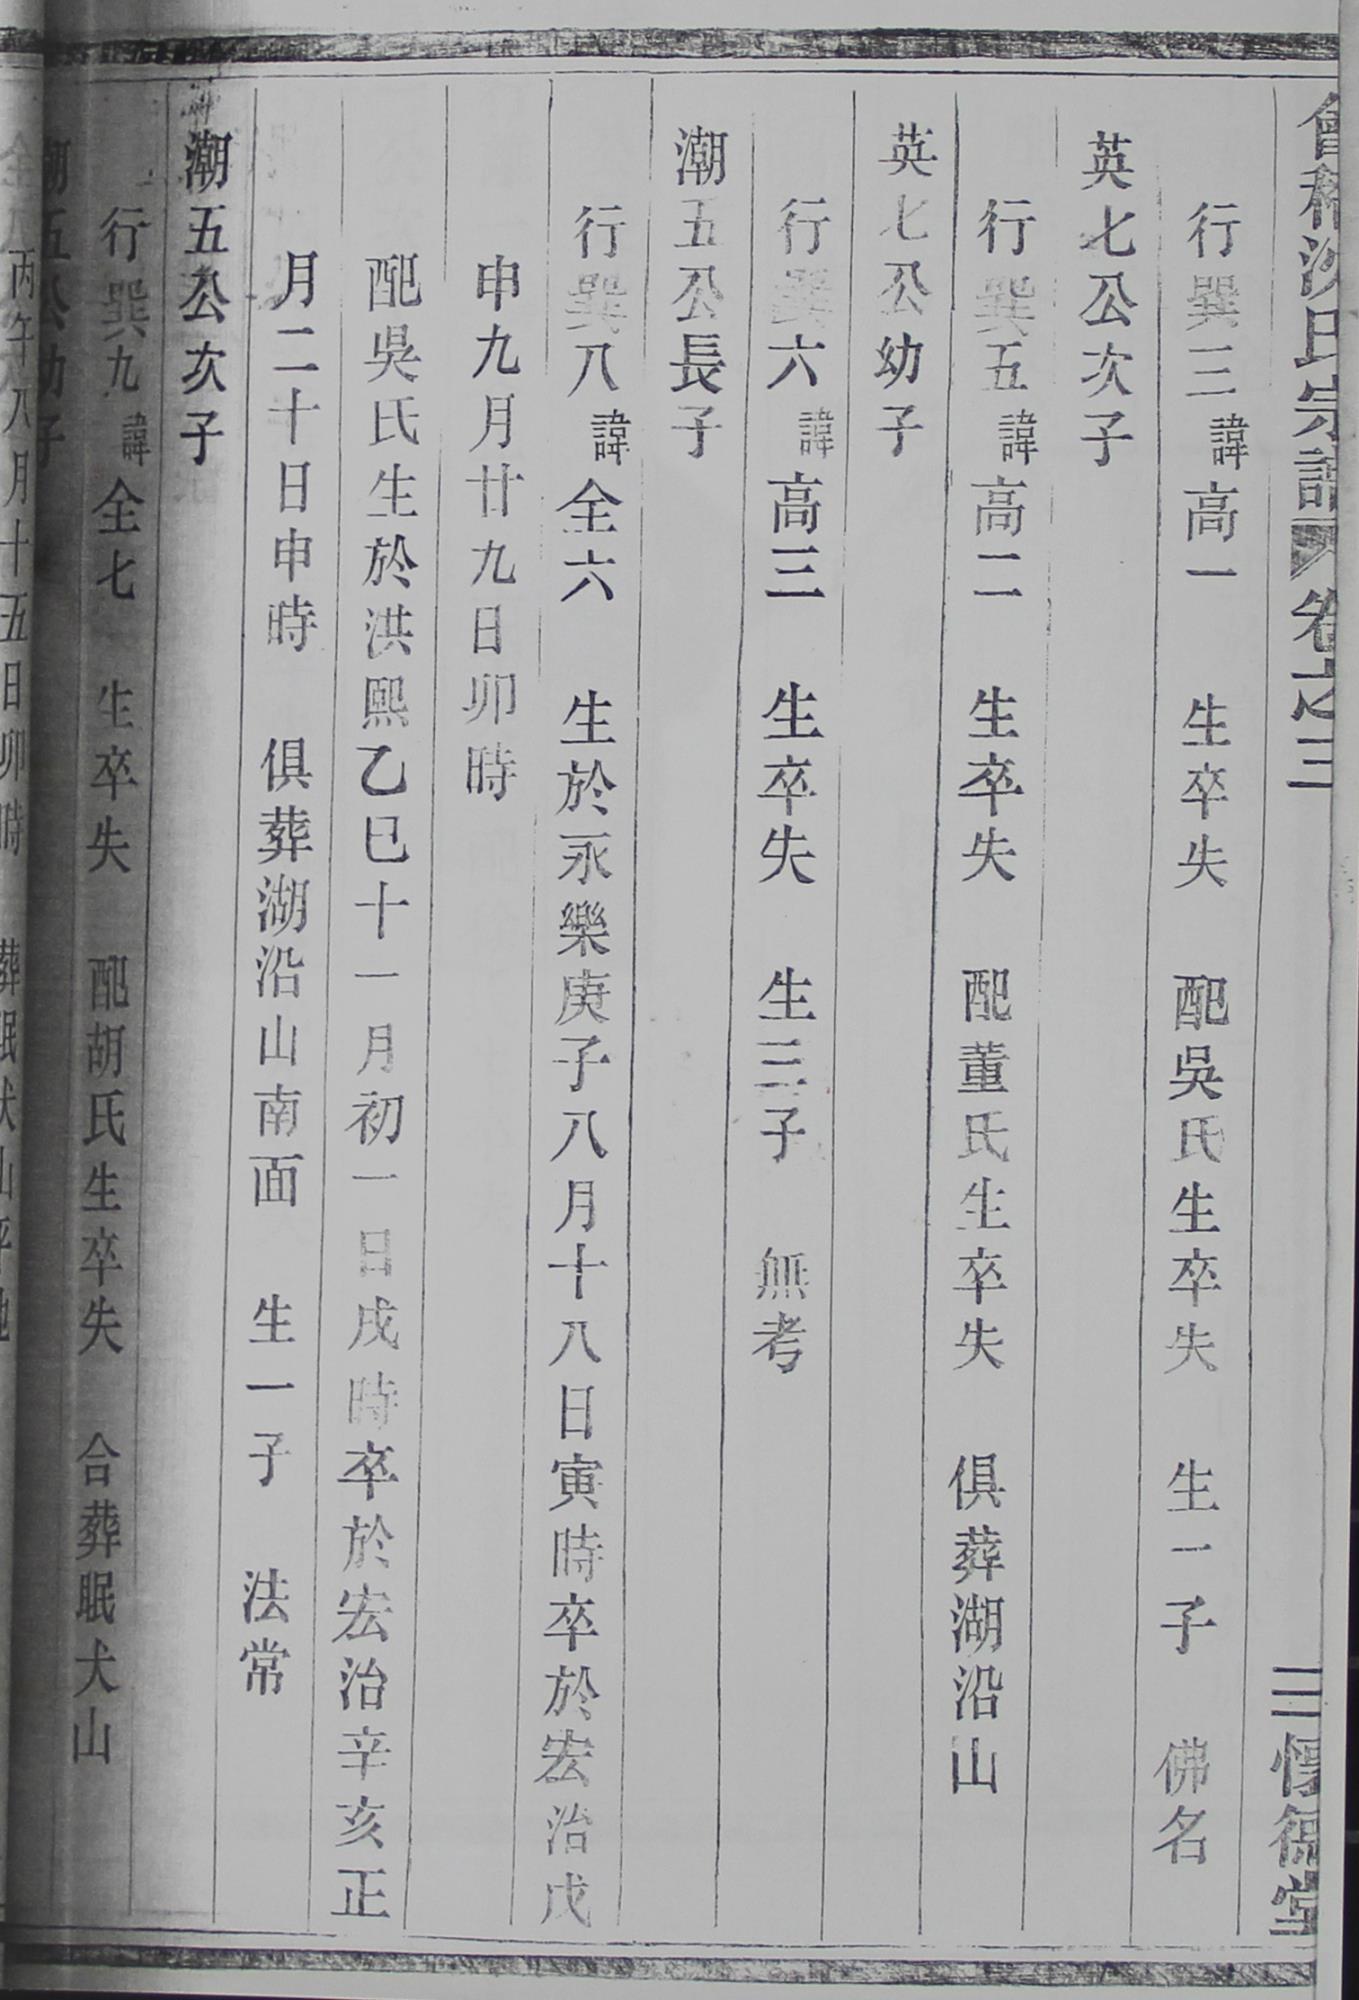 會稽沈氏宗譜 卷之三 三 懷德堂
行巽三諱高一 生卒失 配吳氏生卒失 生一子 佛名
英七公次子
行巽五諱高二 生卒失 配董氏生卒失 俱葬湖沿山
英七公幼子
行巽六諱高三 生卒失 生三子 無考
潮五公長子
行巽八諱全六 生於永樂庚子八月十八日寅時卒於宏治戊
申九月廿九日卯時
配吳氏生於洪熙乙巳十一月初一日戌時卒於宏治辛亥正
月二十日申時 俱葬湖沿山南面 生一子 法常
潮五公次子
行巽九諱全七 生卒失 配胡氏生卒失 合葬眠犬山
潮五公幼子
丙午八月十五日卯時 葬眠犬山平地